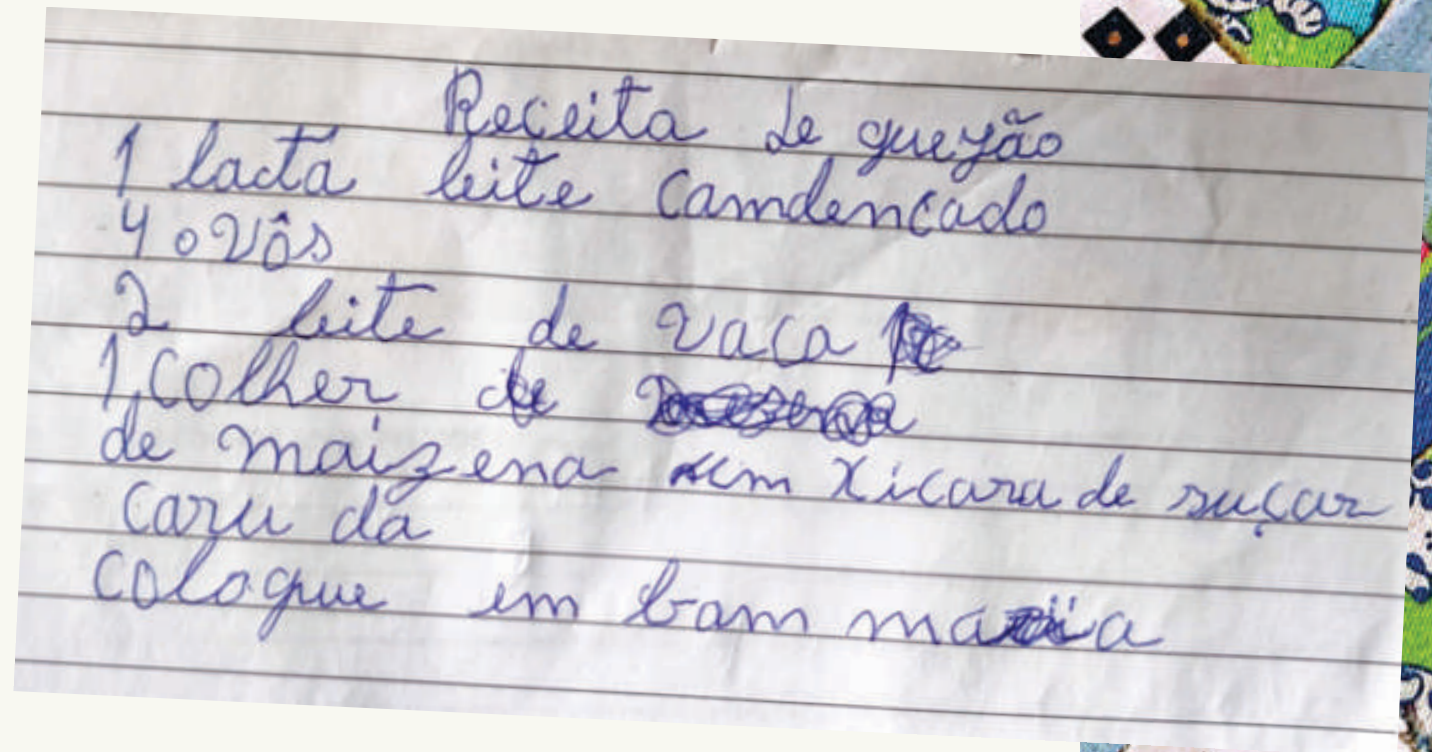 Receita de queyão
1 lacta leite camdencado
4 ovôs
2 leite de vaca
1 colher de
de maizena um xicara de suçar
caru da
coloque em bam maria